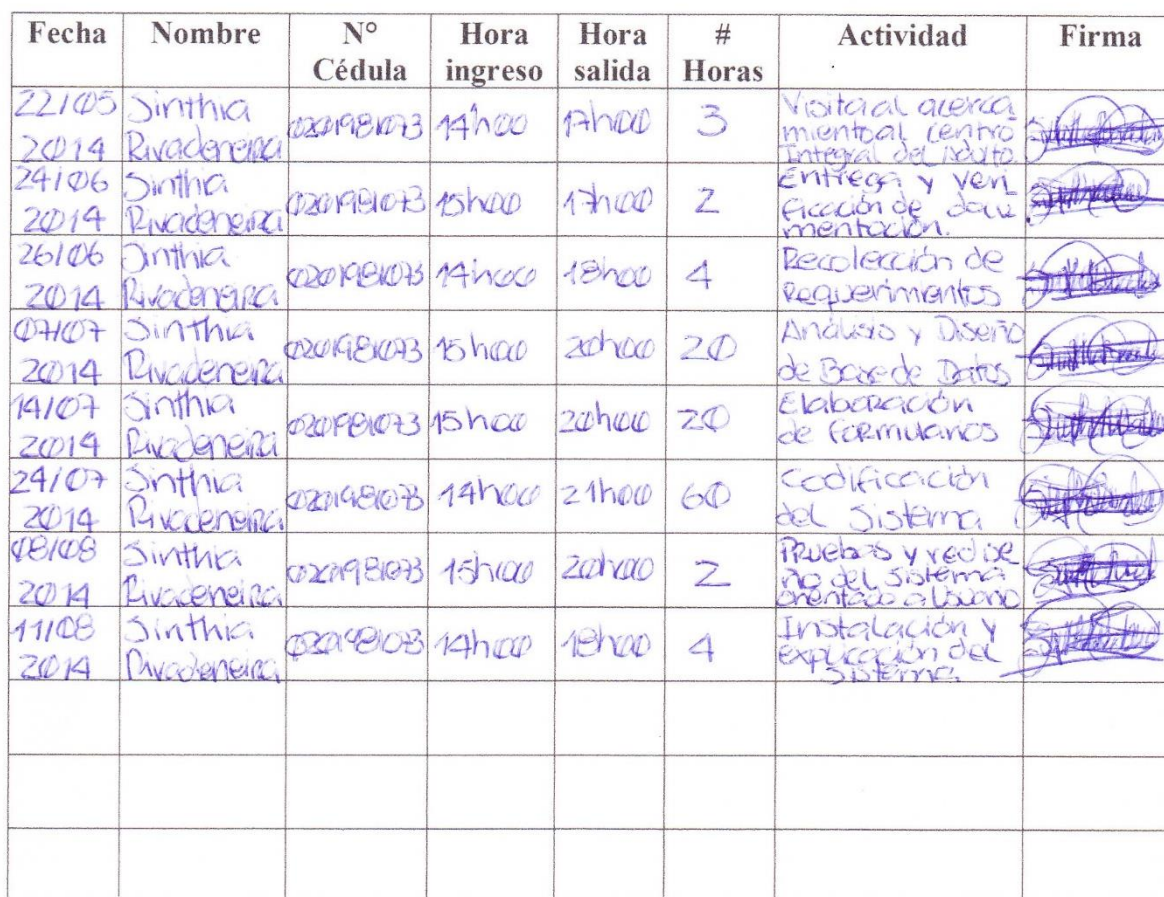 Fecha Nombre N° Cédula Hora ingreso Hora salida # Horas Actividad Firma
22/05 2014 Sinthia Rivadeneira 0201981073 14h00 17h00 3 Visita al acerca miento al centro Integral del Adulto.
24/06 2014 Sinthia Rivadeneira 0201981073 15h00 17h00 2 Entrega y veri ficación de docu mentación.
26/06 2014 Sinthia Rivadeneira 0201981073 14h00 18h00 4 Recolección de Requerimientos
07/07 2014 Sinthia Rivadeneira 0201981073 15h00 20h00 20 Análisis y Diseño de Base de Datos
14/07 2014 Sinthia Rivadeneira 0201981073 15h00 20h00 20 Elaboración de formularios
24/07 2014 Sinthia Rivadeneira 0201981073 14h00 21h00 60 Codificación del Sistema
08/08 2014 Sinthia Rivadeneira 0201981073 15h00 20h00 2 Pruebas y redise ño del Sistema orientado a Usuario
11/08 2014 Sinthia Rivadeneira 0201981073 14h00 18h00 4 Instalación y explicación del Sistema